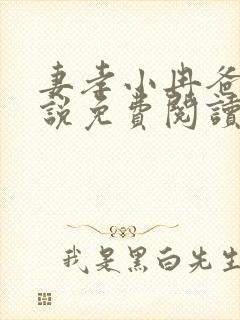 妻孝小冉爸
說免費閱讀
我是黑白先生